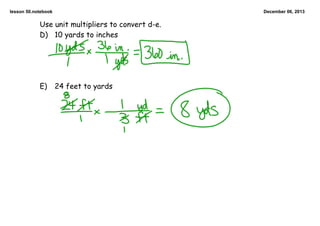 lesson 50.notebook
December 06, 2013
Use unit multipliers to convert d-e.
D) 10 yards to inches
10 yds/1 x 36 in./1 yds = 360 in.
E) 24 feet to yards
8
24 ft/1 x 1 yd/3 ft = 8 yds
1